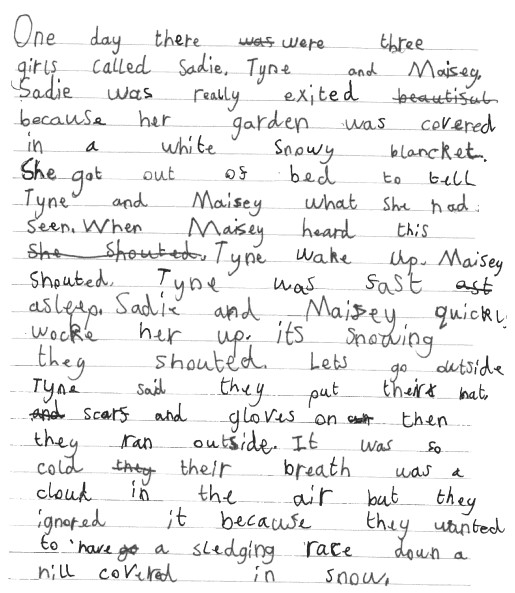 One day there was were three
girls called Sadie, Tyne and Maisey.
Sadie was really exited beautisul
because her garden was covered
in a white snowy blancket.
She got out of bed to tell
Tyne and Maisey what she had
seen. When Maisey heard this
She shouted. Tyne wake up. Maisey
shouted. Tyne was fast ast
asleep. Sadie and Maisey quickly
wocke her up. its snowing
they shouted. Lets go outside
Tyne said they put their hat,
and scarf and gloves on then
they ran outside. It was so
cold they their breath was a
cloud in the air but they
ignored it because they wanted
to have go a sledging race down a
hill covered in snow.